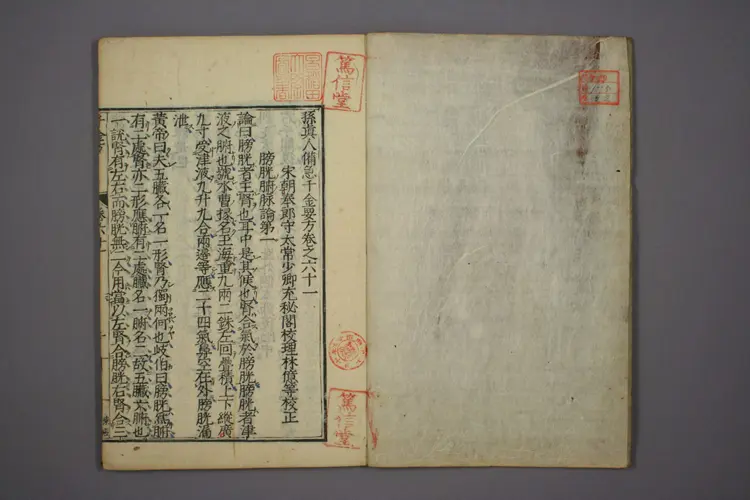 孫真人備急千金要方卷之六十一
宋朝奉郎守太常少卿充秘閣校理林億等校正
膀胱腑脉論第一
論曰膀胱者主腎也耳中是其候也腎合氣於膀胱膀胱者津
液之腑也號水曹掾名玉海重九兩二銖左回疊積上下縱廣
九寸受津液九升九合兩邊等應二十四氣鼻空在外膀胱漏
泄
黃帝曰夫五臟各一名一形腎乃獨兩何也岐伯曰膀胱為腑
有二處腎亦二形應腑有二處臟名一腑名二故五臟六腑也
一說腎有左右而膀胱無二今用當以左腎合膀胱右腎合三
篤信堂
篤信堂